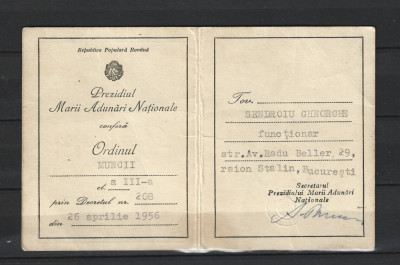 Republica Populară Romînă
Prezidiul
Marii Adunări Naționale
conferă
Ordinul
MUNCII
cl. a III-a
prin Decretul nr. 208
din 26 aprilie 1956
Tov.
SENDROIU GHEORGHE
funcționar
str.Av.Radu Beller, 29,
raion Stalin, București
Secretarul
Prezidiului Marii Adunări
Naționale